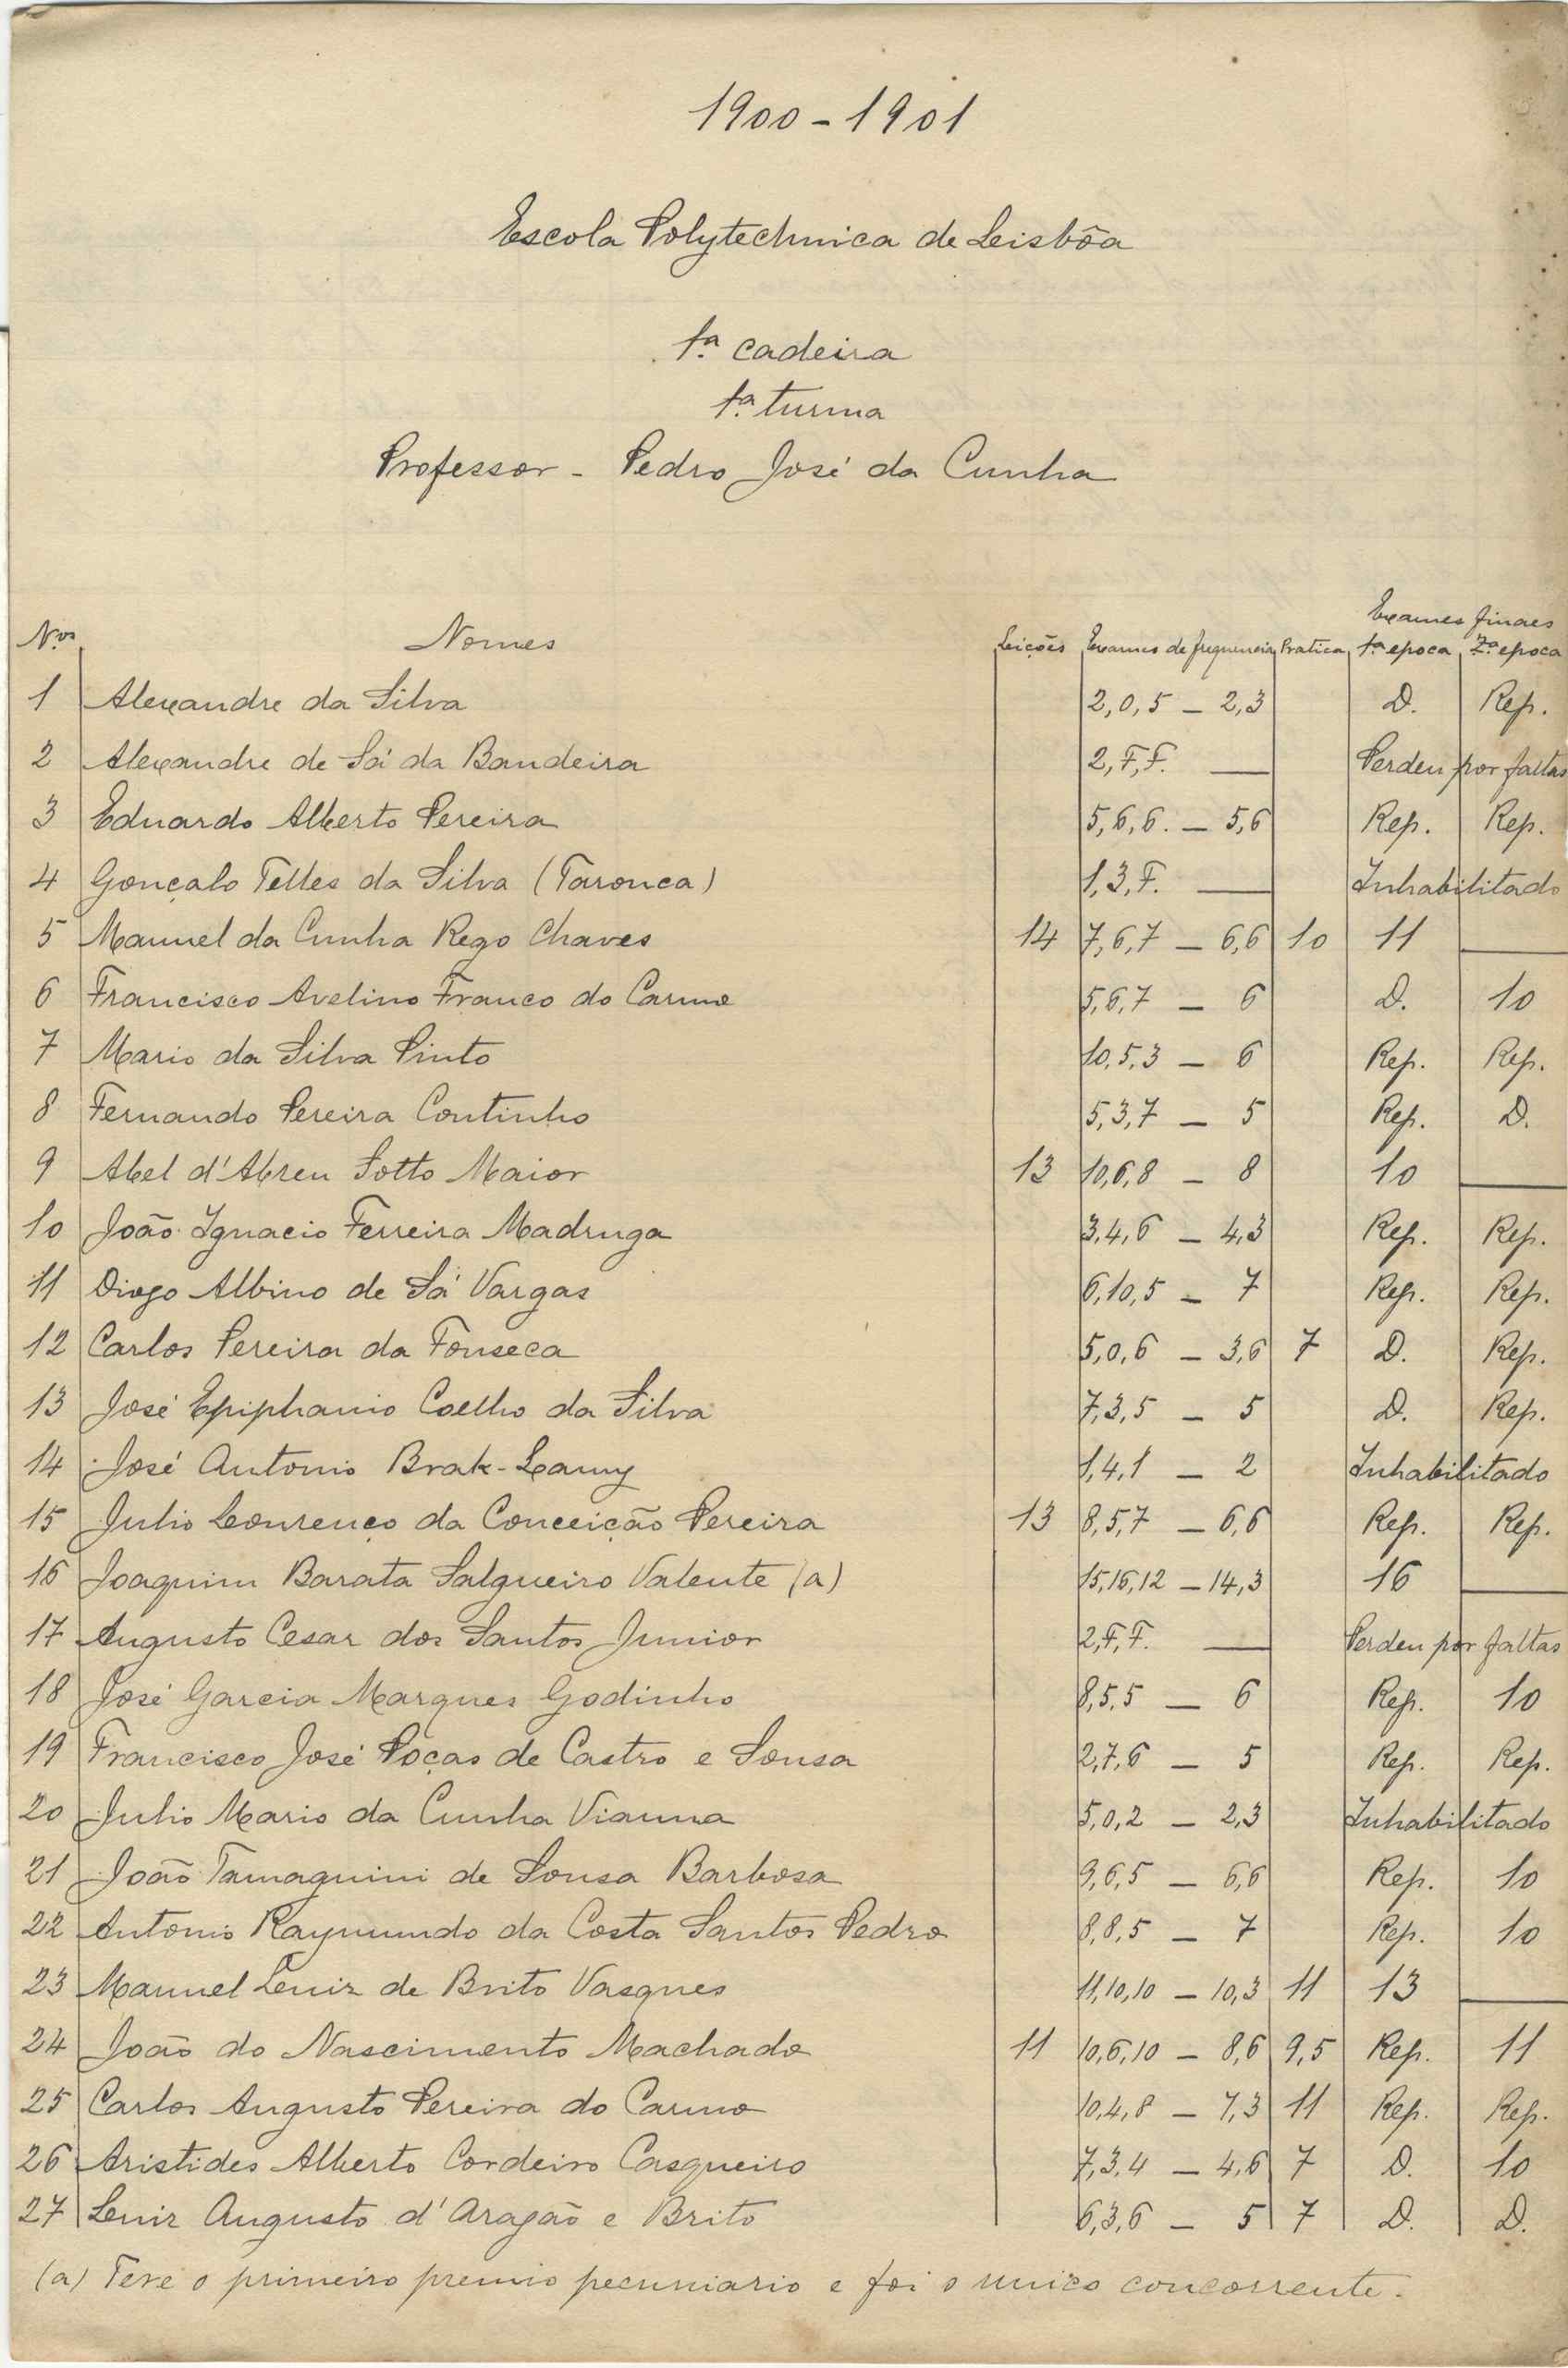 1900-1901
Escola Polytechnica de Lisbôa
1.ª cadeira
1.ª turma
Professor - Pedro José da Cunha
Exames finaes
N.os Nomes Leições Exames de frequencia Pratica 1.ª epoca 2.ª epoca
1 Alexandre da Silva 2,0,5 — 2,3 D. Rep.
2 Alexandre de Sá da Bandeira 2,F,F. — Perdeu por faltas
3 Eduardo Alberto Pereira 5,6,6. — 5,6 Rep. Rep.
4 Gonçalo Telles da Silva (Tarouca) 1,3,F. — Inhabilitado
5 Manuel da Cunha Rego Chaves 14 7,6,7 — 6,6 10 11 —
6 Francisco Avelino Franco do Carmo 5,6,7 — 6 D. 10
7 Mario da Silva Pinto 10,5,3 — 6 Rep. Rep.
8 Fernando Pereira Coutinho 5,3,7 — 5 Rep. D.
9 Abel d'Abreu Sotto Maior 13 10,6,8 — 8 10 —
10 João Ignacio Ferreira Madruga 3,4,6 — 4,3 Rep. Rep.
11 Diogo Albino de Sá Vargas 6,10,5 — 7 Rep. Rep.
12 Carlos Pereira da Fonseca 5,0,6 — 3,6 7 D. Rep.
13 José Epiphanio Coelho da Silva 7,3,5 — 5 D. Rep.
14 José Antonio Brak-Lamy 1,4,1 — 2 Inhabilitado
15 Julio Lourenço da Conceição Pereira 13 8,5,7 — 6,6 Rep. Rep.
16 Joaquim Barata Salgueiro Valente (a) 15,16,12 — 14,3 16 —
17 Augusto Cesar dos Santos Junior 2,F,F. — Perdeu por faltas
18 José Garcia Marques Godinho 8,5,5 — 6 Rep. 10
19 Francisco José Poças de Castro e Sousa 2,7,6 — 5 Rep. Rep.
20 Julio Mario da Cunha Vianna 5,0,2 — 2,3 Inhabilitado
21 João Tamagnini de Sousa Barbosa 9,6,5 — 6,6 Rep. 10
22 Antonio Raymundo da Costa Santos Pedro 8,8,5 — 7 Rep. 10
23 Manuel Luiz de Brito Vasques 11,10,10 — 10,3 11 13 —
24 João do Nascimento Machado 11 10,6,10 — 8,6 9,5 Rep. 11
25 Carlos Augusto Pereira do Carmo 10,4,8 — 7,3 11 Rep. Rep.
26 Aristides Alberto Cordeiro Casqueiro 7,3,4 — 4,6 7 D. 10
27 Luiz Augusto d'Aragão e Brito 6,3,6 — 5 7 D. D.
(a) Teve o primeiro premio pecuniario e foi o unico concorrente.